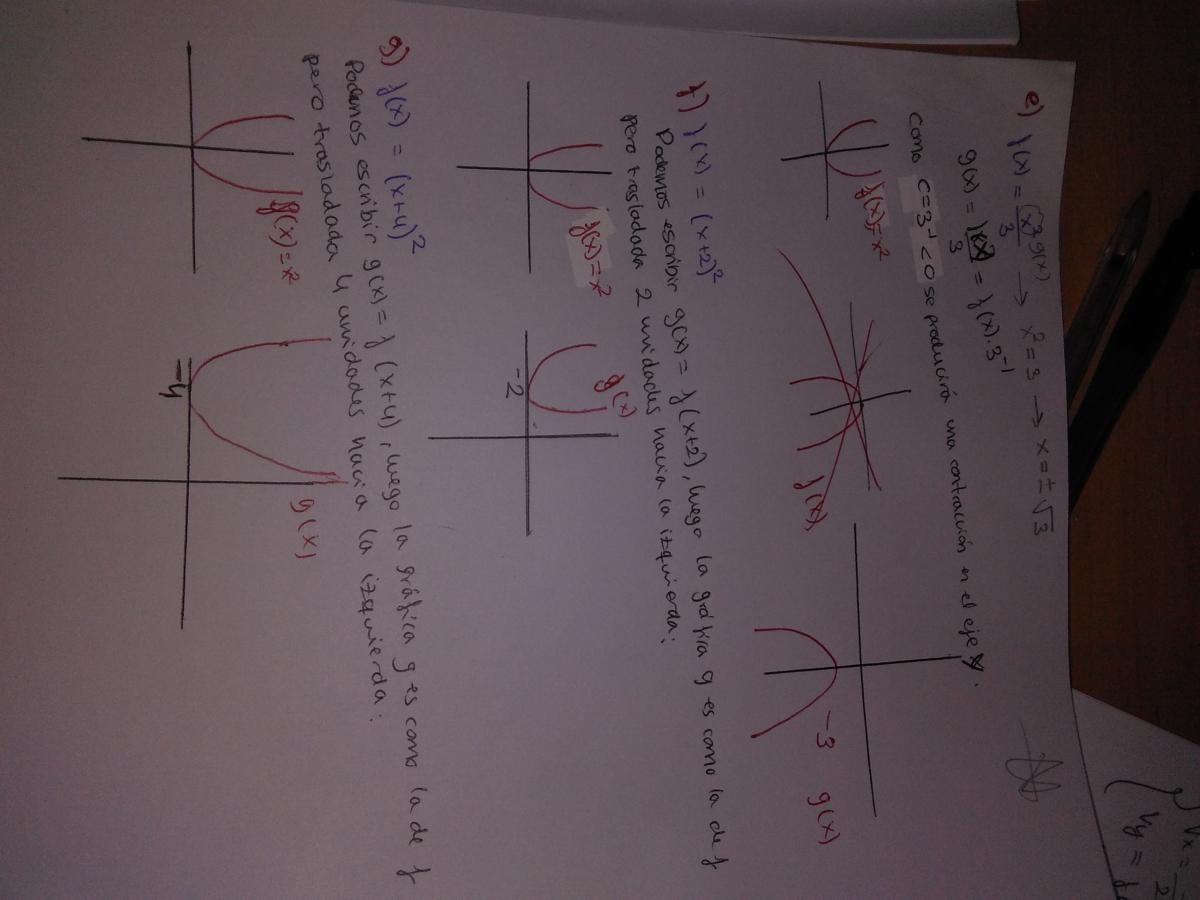 e) f(x) = (x)² g(x) → x² = 3 → x = ±√3
3
g(x) = = f(x)·3⁻¹
3
Como c=3⁻¹<0 se producirá una contracción en el eje
f(x)=x²
f(x)
-3 g(x)
f) f(x) = (x+2)²
Podemos escribir g(x) = f(x+2), luego la gráfica g es como la de f
pero trasladada 2 unidades hacia la izquierda:
f(x)=x²
g(x)
-2
g) f(x) = (x+4)²
Podemos escribir g(x) = f(x+4), luego la gráfica g es como la de f
pero trasladada 4 unidades hacia la izquierda:
f(x)=x²
g(x)
-4